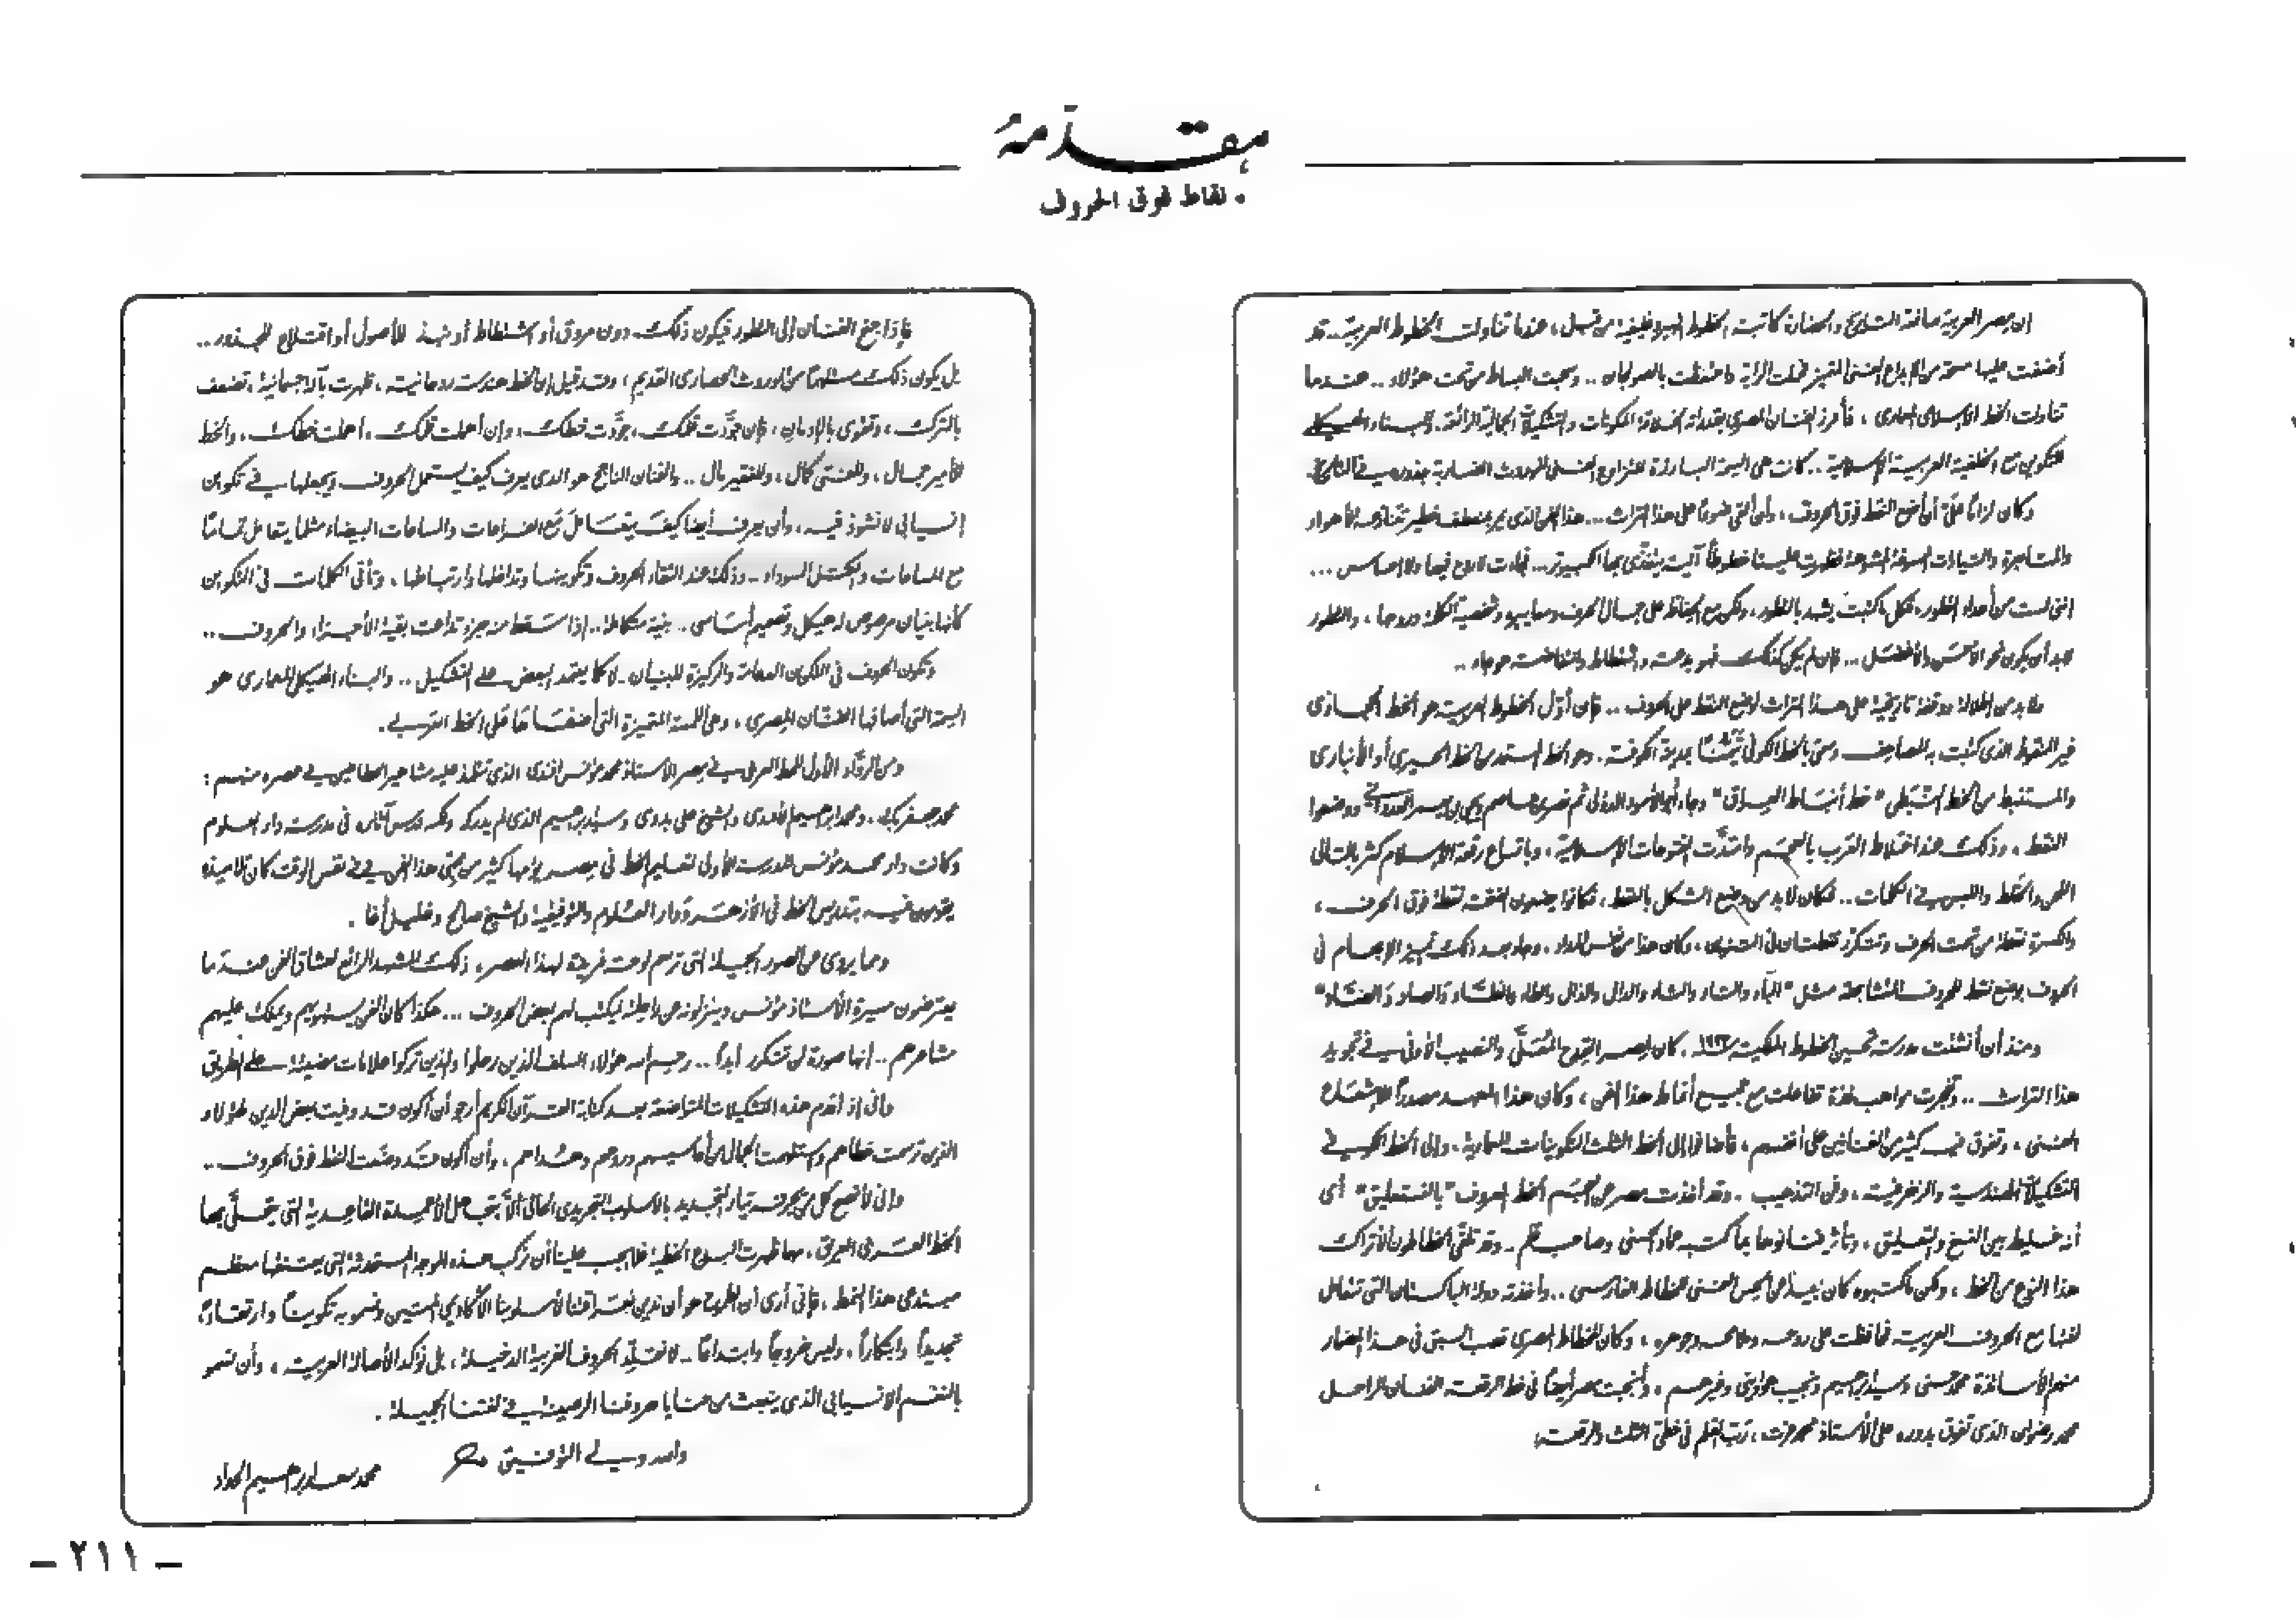 مقدمة
• نقاط فوق الحروف
إن مصر العربية صانعة التاريخ والحضارة كاتبة الخطوط الهيروغليفية من قبل، عندما تناولت الخطوط العربية.. قد
أضفت عليها مسحة من الإبداع الفنى المتميز فحملت الراية واحتفظت بالصولجان .. وسحبت البساط من تحت هؤلاء .. عندما
تناولت الخط الإسلامى المعمارى ، فأفرز الفنان المصرى بقدراته الخلاقة المكونات والتشكيلات الجمالية الرائعة. والبناء الهيكلى
للتكوين مع الخلفية العربية الإسلامية .. كانت هى السمة البارزة للتزاوج الفنى للموروث الضاربة جذوره فى التاريخ.
وكان لزاماً علىّ أن أضع النقط فوق الحروف ، وأن ألقى ضوءاً على هذا التراث ... هذا الفن الذى يمر بمنعطف خطير تتنازعه الأهواء
والتيارات فظهرت علينا خطوط آلية يتغذى بها الكمبيوتر ... فجاءت لا روح فيها ولا احساس ...
اننى لست من أعداء التطور، فكل ما كتبت يشهد بالتطور، ولكن مع الحفاظ على جمال الحرف ومعاييره وشخصية الكلمة وروحها ، والتطور
لابد أن يكون نحو الأحسن والأفضل ... فإن لم يكن كذلك فهو بدعة واشتطاط وانتفاضة هوجاء ..
ولابد من اطلالة ووقفة تاريخية على هذا التراث لوضع النقط على الحروف .. فإن أول الخطوط العربية هو الخط الحجازى
غير المنقوط الذى كتبت به المصاحف وسمى بالخط الكوفى تيمناً بمدينة الكوفة . وهو الخط المستمد من الخط الحميرى أو الأنبارى
والمستنبط من الخط النبطى "خط أنباط العراق" وجاء أبو الأسود الدؤلى ثم نصر بن عاصم ويحيى بن يعمر ووضعوا
النقط ، وذلك عند اختلاط العرب بالعجم وامتدت الفتوحات الإسلامية ، وباتساع رقعة الإسلام كثر بالتالى
اللحن والخلط واللبس فى الكلمات .. فكان لابد من وضع الشكل بالنقط ، فكانوا يضعون الفتحة نقطة فوق الحرف ،
والكسرة نقطة من تحت الحرف وتتكرر نقطتان فى التنوين ، وكان هذا من نفس المداد . وجاء بعد ذلك تمييز الإعجام فى
الحروف بوضع نقط للحروف المتشابهة مثل "الباء والتاء والثاء والدال والذال والطاء والظاء والصاد والضاد"
ومنذ أن أنشئت مدرسة تحسين الخطوط الملكية ١٩٢٢ . كان لمصر القدح المعلى والنصيب الأوفى فى تجويد
هذا التراث .. وتفجرت مواهب فذة تفاعلت مع جميع أنماط هذا الفن ، وكان هذا المعهد مصدراً للإشعاع
الفنى ، وتفوق فيه كثير من الفنانين على أنفسهم ، فأضافوا إلى الخط الثلث التكوينات المعمارية . وإلى الخط الكوفى
التشكيلات الهندسية والزخرفية ، وفن التذهيب . وقد أخذت مصر عن العجم الخط المعروف "بالنستعليق" أى
أنه خليط بين النسخ والتعليق ، وتأثر فنانوها بما كتب عماد الحسنى وصاحب قلم .. وقد تلقى الخطاطون الأتراك
هذا النوع من الخط ، ولكن ما كتبوه كان بعيداً عن الحس الفنى للخطاط الفارسى .. وأخذته دولة الباكستان التى تتعامل
لغتنا مع الحروف العربية فحافظت على روحه وملامحه وجوهره ، وكان للخطاط المصرى قصب السبق فى هذا المضمار
منهم الأساتذة محمد حسنى وسيد إبراهيم ونجيب هواوينى وغيرهم ، وأنجبت مصر أيضاً فى خط الرقعة الفنان الراحل
محمد رضوان الذى تفوق بدوره على الأستاذ محمد عزت ، رتب القلم فى خطى الثلث والرقعة .
فإذا جنح الفنان إلى التطور فيكون ذلك دون مروق أو اشتطاط أو نبذ للأصول أو اقتلاع للجذور ..
بل يكون ذلك مستلهماً من الموروث الحضارى القديم ، وقد قيل إن الخط هندسة روحانية ، ظهرت بآلة جسمانية ، تضعف
بالترك ، وتقوى بالإدمان ، فإن جودت قلمك ، جودت خطك ، وإن أهملت قلمك ، أهملت خطك ، والخط
للأمير جمال ، وللغنى كمال ، وللفقير مال .. والفنان الناجح هو الذى يعرف كيف يستعمل الحروف ويجعلها فى تكوين
إنسيابى لا نشوذ فيه ، وأن يعرف أيضا كيف يتعامل مع الفراغات والمساحات البيضاء مثلما يتعامل تماما
مع المساحات والكتل السوداء .. وذلك عند التقاء الحروف وتكوينها وتداخلها وارتباطها ، وتأتى الكلمات فى التكوين
كأنها بنيان مرصوص لهيكل وتصميم أساسى .. بنية متكاملة .. إذا سقط منه جزء تداعت بقية الأجزاء والحروف ..
وتكون الحروف فى التكوين الدعامة والركيزة للبنيان .. لا كما يعتمد البعض على التشكيل .. والبناء الهيكلى المعمارى هو
السمة التى أضافها الفنان المصرى ، وهى اللمسة المتميزة التى أضفاها على الخط العربى .
ومن الرواد الأول للخط العربى فى مصر الأستاذ محمد مؤنس افندى الذى تتلمذ عليه مشاهير الخطاطين فى عصره منهم :
محمد جعفر بك . ومحمد إبراهيم الأفندى والشيخ على بدوى وسيد إبراهيم الذى لم يدركه ولكنه درس آثاره فى مدرسة دار العلوم
وكانت دار محمد مؤنس المدرسة الأولى لتعليم الخط فى مصر يؤمها كثير من محبى هذا الفن فى نفس الوقت كان تلاميذه
يقومون فيه بتدريس الخط فى الأزهر ودار العلوم والتوفيقية والشيخ صالح وخليل أغا .
ومما يروى عن الصور الجميلة التى ترسم لوحة فريدة لهذا العصر ، ذلك المشهد الرائع لعشاق الفن عندما
يعترضون مسيرة الأستاذ مؤنس وينزلونه عن راحلته ليكتب لهم بعض الحروف ... هكذا كان الفن يستهويهم ويملك عليهم
مشاعرهم .. انها صورة لن تتكرر أبداً .. رحم الله هؤلاء السلف الذين رحلوا والذين تركوا علامات مضيئة على الطريق
وانى إذ أقدم هذه التشكيلات المتواضعة بعد كتابة القرآن الكريم أرجو أن أكون قد وفيت بعض الدين لهؤلاء
الذين ترسمت خطاهم واستلهمت الجمال من أحاسيسهم وروحهم وهداهم ، وأن أكون قد وضعت النقط فوق الحروف ..
وانى لأنصح كل من يجرفه تيار التجديد بالأسلوب التجريدى الحالى ألا يتجاهل الأعمدة القاعدية التى يتحلى بها
الخط العربى العريق ، مهما ظهرت البدع الخطية فلا يجب علينا أن نركب هذه الموجة المستحدثة التى يعتنقها معظم
مبتدئى هذا الخط ، فإنى أرى أن التطوير هو أن ندين بعراقتنا لأسلوبنا الأكاديمى المتين ونسمو به تكويناً وارتقاءً،
تجديداً وابتكاراً ، وليس خروجاً وابتداعاً .. لا نقلد الحروف الغربية الدخيلة ، بل نؤكد الأصالة العربية ، وأن نسمو
بالنغم الانسيابى الذى ينبعث من حنايا حروفنا الرصينة فى لغتنا الجميلة .
والله ولى التوفيق
محمد سعد إبراهيم الحداد
– ٢١١ –